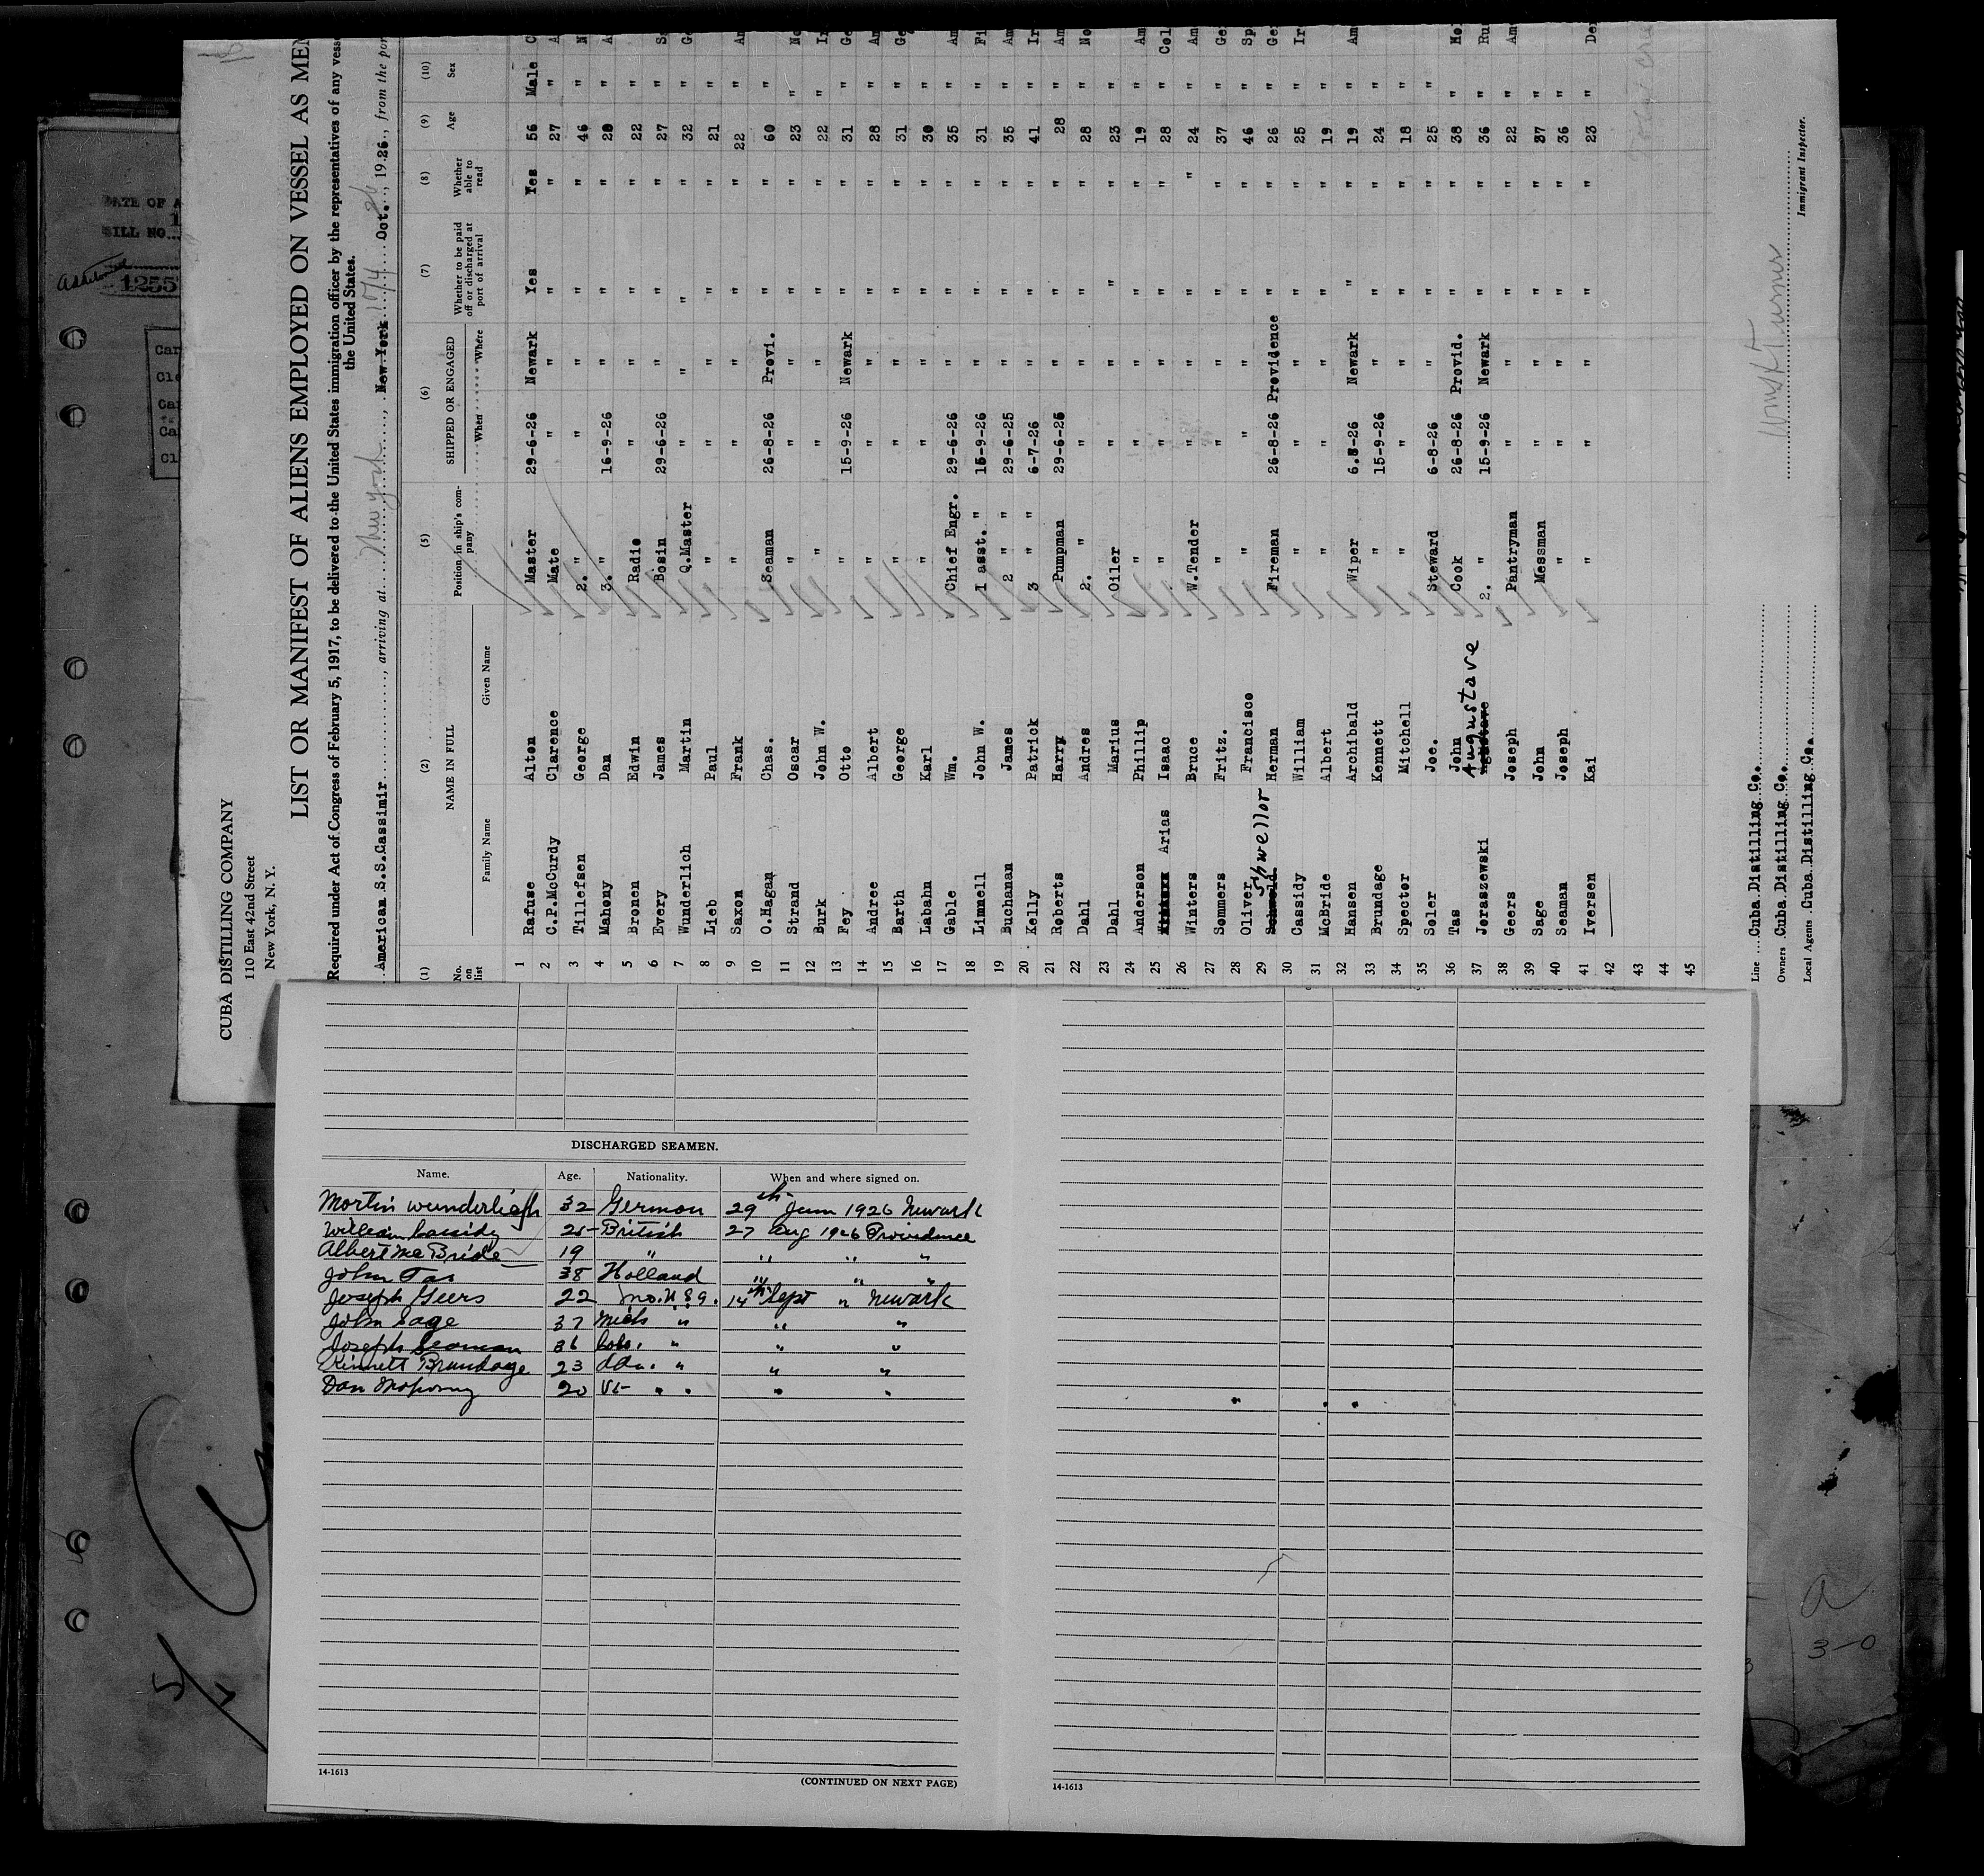 CUBA DISTILLING COMPANY
110 East 42nd Street
New York, N. Y.
LIST OR MANIFEST OF ALIENS EMPLOYED ON VESSEL AS MEM
Required under Act of Congress of February 5, 1917, to be delivered to the United States immigration officer by the representatives of any vesse
the United States.
American S.S.Cassimir, arriving at New York, New York Oct. 26, 1926, from the por
(1) (2) (5) (6) (7) (8) (9) (10)
No. on list NAME IN FULL Family Name Given Name Position in ship's company SHIPPED OR ENGAGED When Where Whether to be paid off or discharged at port of arrival Whether able to read Age Sex
1 Rafuse Alton Master 29-6-26 Newark Yes Yes 56 Male C
2 C.P.McCurdy Clarence Mate " " " " 27 " A
3 Tillefsen George 2. " " " " " 46 " N
4 Mahony Dan 3. " 16-9-26 " " " 20 " A
5 Bronen Edwin Radio " " " " 22 "
6 Every James Bosin 29-6-26 " " " 27 " S
7 Wunderlich Martin Q.Master " " " " 32 " G
8 Lieb Paul " " " " " 21 "
9 Saxon Frank " " " " " 22 " An
10 O.Hagan Chas. Seaman 26-8-26 Provi. " " 60 "
11 Strand Oscar " " " " " 23 " No
12 Burk John W. " " " " " 22 " Ir
13 Fey Otto " 15-9-26 Newark " " 31 " Ge
14 Andree Albert " " " " " 28 " Am
15 Barth George " " " " " 31 " Ge
16 Labahn Karl " " " " " 30 "
17 Gable Wm. Chief Engr. 29-6-26 " " " 35 " Am
18 Linnell John W. 1 asst. " 15-9-26 " " " 31 " Fi
19 Buchanan James 2 " " 29-6-25 " " " 35 " Am
20 Kelly Patrick 3 " " 6-7-26 " " " 41 " Ir
21 Roberts Harry Pumpman 29-6-25 " " " 28 " Am
22 Dahl Andres 2. " " " " " 28 " No
23 Dahl Marius Oiler " " " " 23 "
24 Anderson Phillip " " " " " 19 " Am
25 Arias Isaac " " " " " 28 " Col
26 Winters Bruce W.Tender " " " " 24 " Am
27 Sommers Fritz. " " " " " 37 " Ge
28 Oliver Francisco " " " " " 46 " Sp
29 Schwellor Herman Fireman 26-8-26 Providence " " 26 " Ge
30 Cassidy William " " " " " 25 " Ir
31 McBride Albert " " " " " 19 "
32 Hansen Archibald Wiper 6.8-26 Newark " " 19 " Am
33 Brundage Kennett " 15-9-26 " " " 24 "
34 Spector Mitchell " " " " " 18 "
35 Soler Joe. Steward 6-8-26 " " " 25 "
36 Tas John Cook 26-8-26 Provid. " " 38 " Hol
37 Joraszewski Augustave 2. " 15-9-26 Newark " " 36 " Ru
38 Geers Joseph Pantryman " " " " 22 " Am
39 Sage John Messman " " " " 37 "
40 Seaman Joseph " " " " " 36 "
41 Iversen Kai " " " " " 23 " De
42
43
44
45
Line Cuba Distilling Co.
Owners Cuba Distilling Co.
Local Agents Cuba Distilling Co.
Immigrant Inspector.
DATE OF A
BILL NO.
1255
DISCHARGED SEAMEN.
Name. Age. Nationality. When and where signed on.
Martin Wunderlich 32 German 29th June 1926 Newark
William Cassidy 25 British 27 Aug 1926 Providence
Albert McBride 19 " " " "
John Tas 38 Holland " " "
Joseph Geers 22 Mo. U.S.A. 14th Sept " Newark
John Sage 37 Mich " " "
Joseph Seaman 36 Colo. " " "
Kinnett Brundage 23 " " "
Dan Mahony 20 Vt " " " "
14-1613
(CONTINUED ON NEXT PAGE)
14-1613
a
3-0